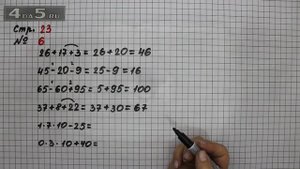 4da5.ru
Стр. 23
№ 6
26+17+3=26+20=46
45-20-9=25-9=16
65-60+95=5+95=100
37+8+22=37+30=67
1·7·10-25=
0·3·10+40=